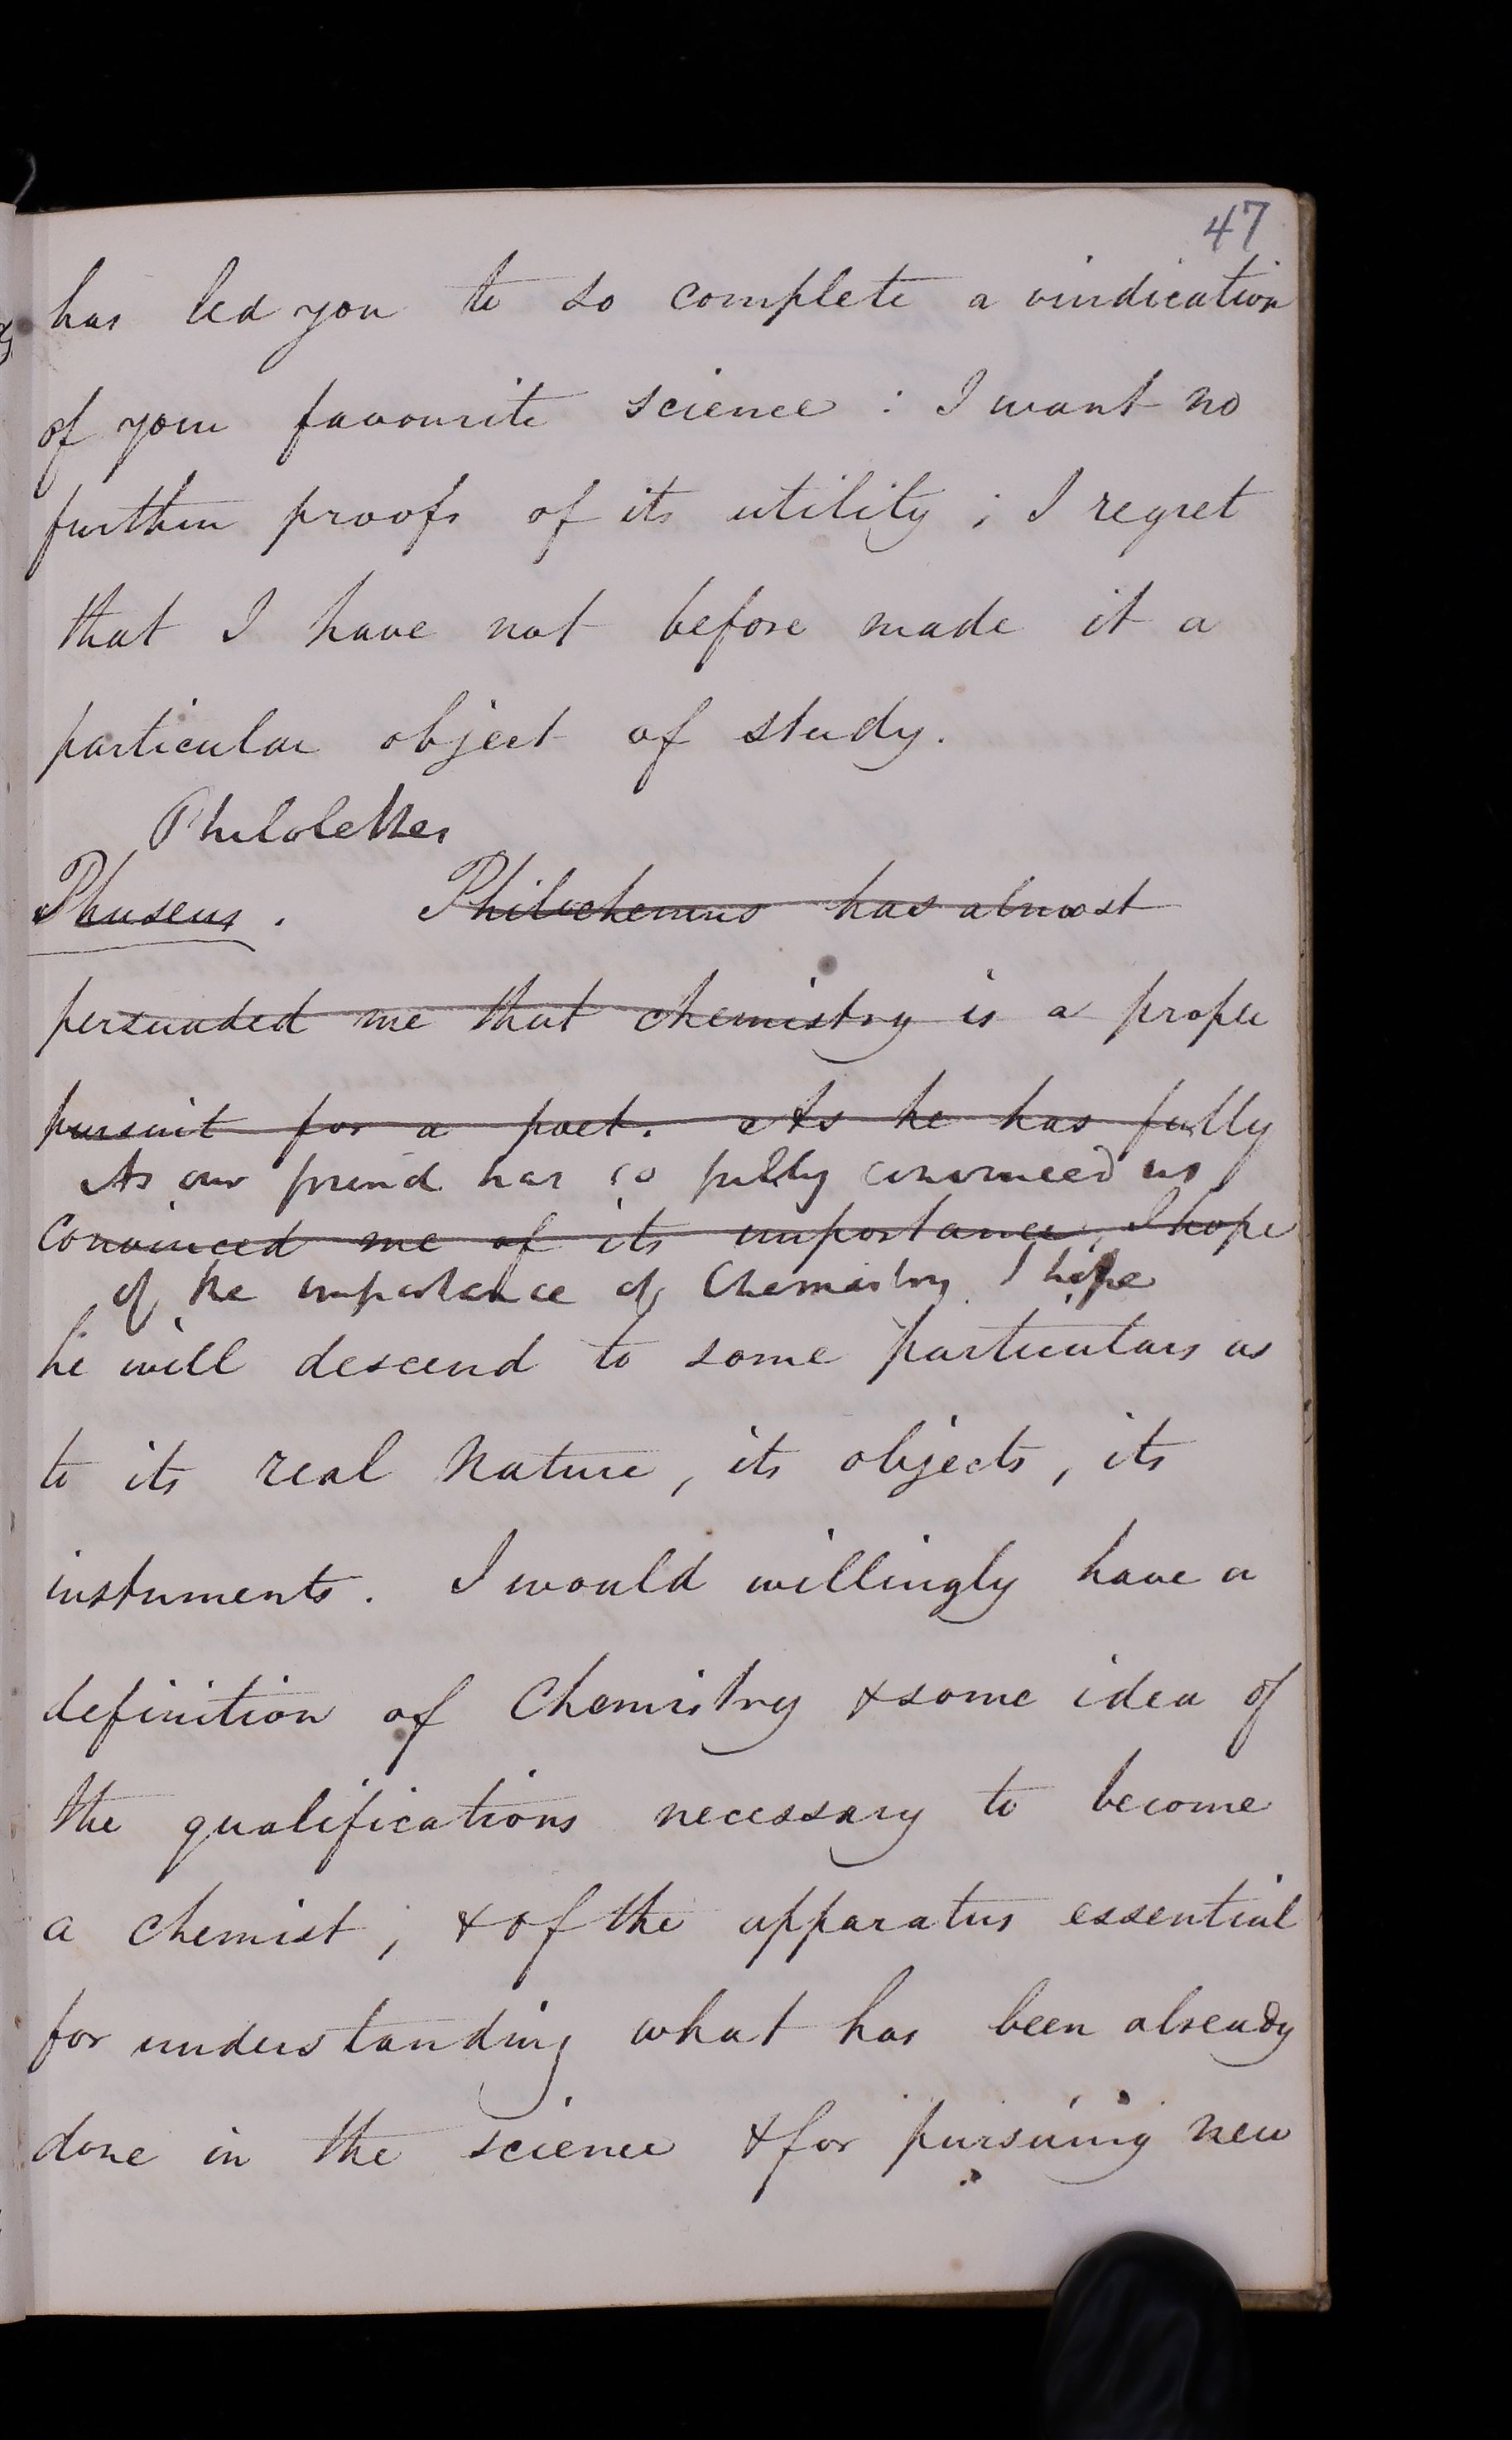 47
has led you to so complete a vindication
of your favourite science : I want no
further proofs of its utility ; I regret
that I have not before made it a
particular object of study.
Philalethes
Physeus . Philochemus has almost
persuaded me that chemistry is a proper
pursuit for a poet. As he has fully
As our friend has so fully convinced us
convinced me of its importance, I hope
of the importance of Chemistry I hope
he will descend to some particulars as
to its real Nature, its objects, its
instruments. I would willingly have a
definition of Chemistry & some idea of
the qualifications necessary to become
a Chemist ; & of the apparatus essential
for understanding what has been already
done in the science & for pursuing new